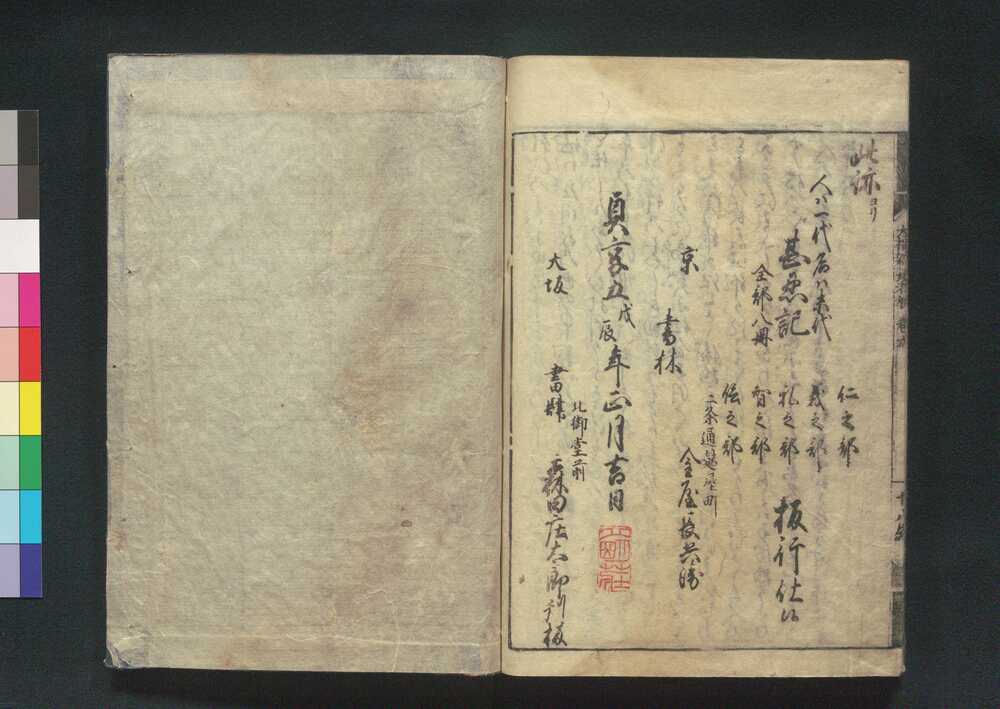 此跡ヨリ
人ハ一代名ハ末代
甚忍記
全部八冊
仁之部
義之部
礼之部
智之部
信之部
板行仕候
京
書林
二条通
金屋長兵衛
貞享五戊辰年正月吉日
大坂
書肆
北御堂前
森田庄太郎刊板